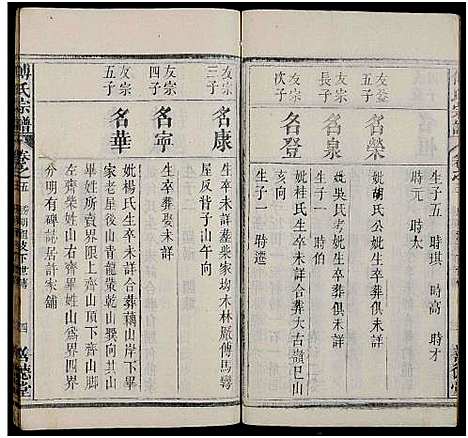 友益五子
名榮
妣胡氏公妣生卒葬俱未詳
生子五 時琪 時高 時才
時元 時太
友宗長子
名泉
妣吳氏考妣生卒葬俱未詳
生子一 時伯
友宗次子
名登
妣桂氏生卒未詳合葬大古嶺巳山
亥向
生子一 時遷
友宗三子
名康
生卒未詳葬柴家均木林厰傅馬彎
屋反背子山午向
友宗四子
名寧
生卒葬娶未詳
友宗五子
名華
妣楊氏生卒未詳合葬藕山岸下畢
家老星後山青龍策乾山巽向其山
畢姓所賣界限上齊山頂下齊山脚
左齊柴姓山右齊畢姓山為界四界
分明有碑誌居許家舖
傅氏宗譜
卷之五
四